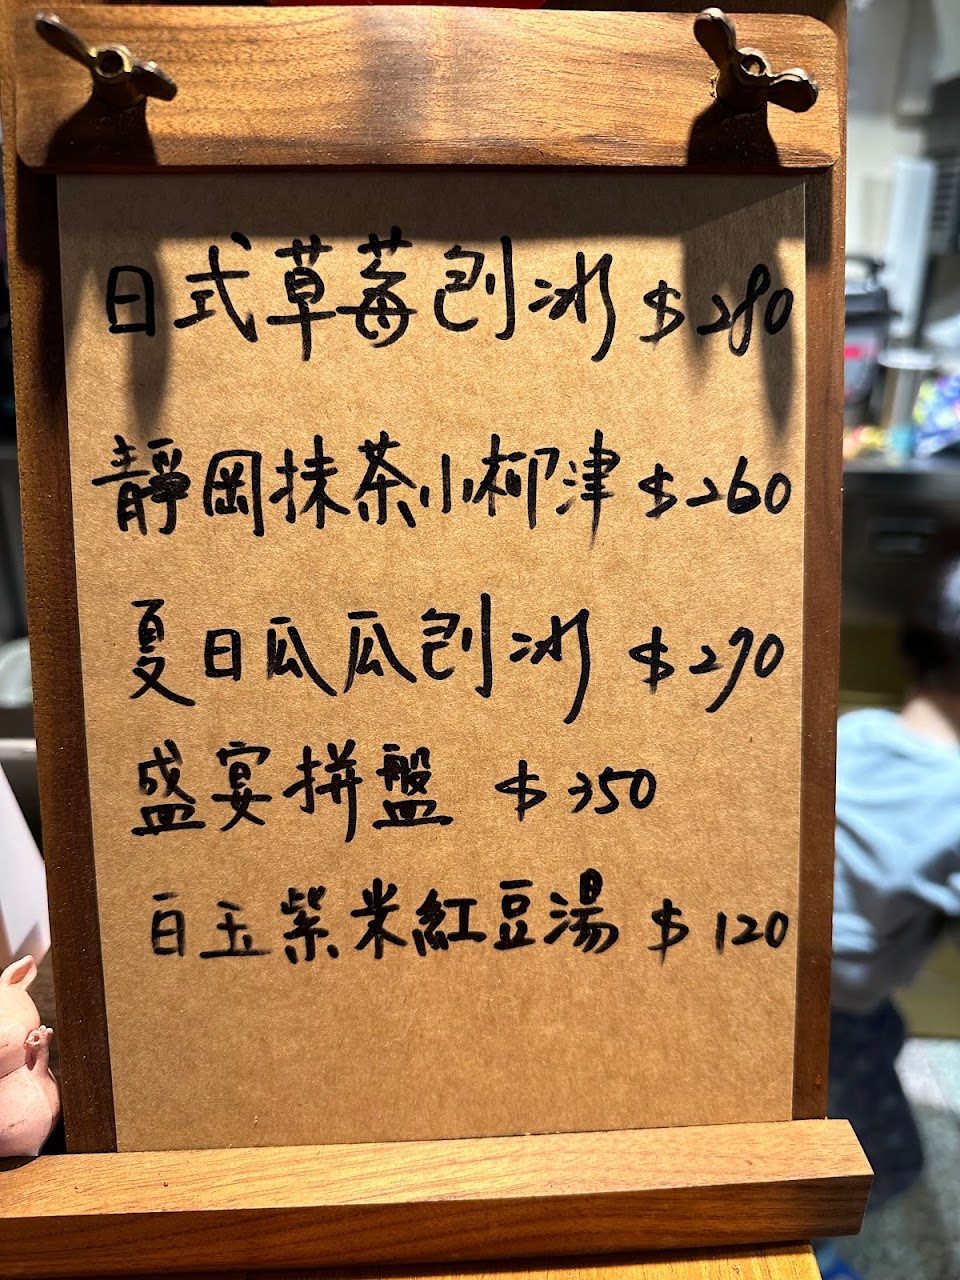 日式草莓刨冰 $280
靜岡抹茶小柳津 $260
夏日瓜瓜刨冰 $290
盛宴拼盤 $350
白玉紫米紅豆湯 $120